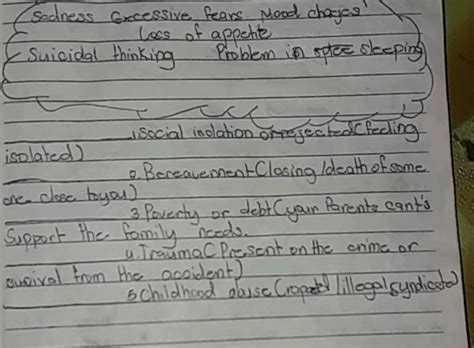 Sadness Excessive fears Mood changes
Loss of appetite
Suicidal thinking Problem in sleeping
1 Social isolation or rejected (feeling
isolated)
2. Bereavement (losing/death of some
one close to you)
3 Poverty or debt (your Parents cant's
Support the family needs.
4. Trauma (Present on the crime or
survival from the accident)
5 Childhood abuse (raped/illegal syndicated)